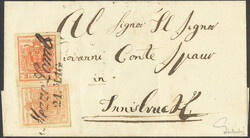 Al
Signor Il Signor
Giovanni Conte Spaur
in
Innsbruck
Mezzo Lomb